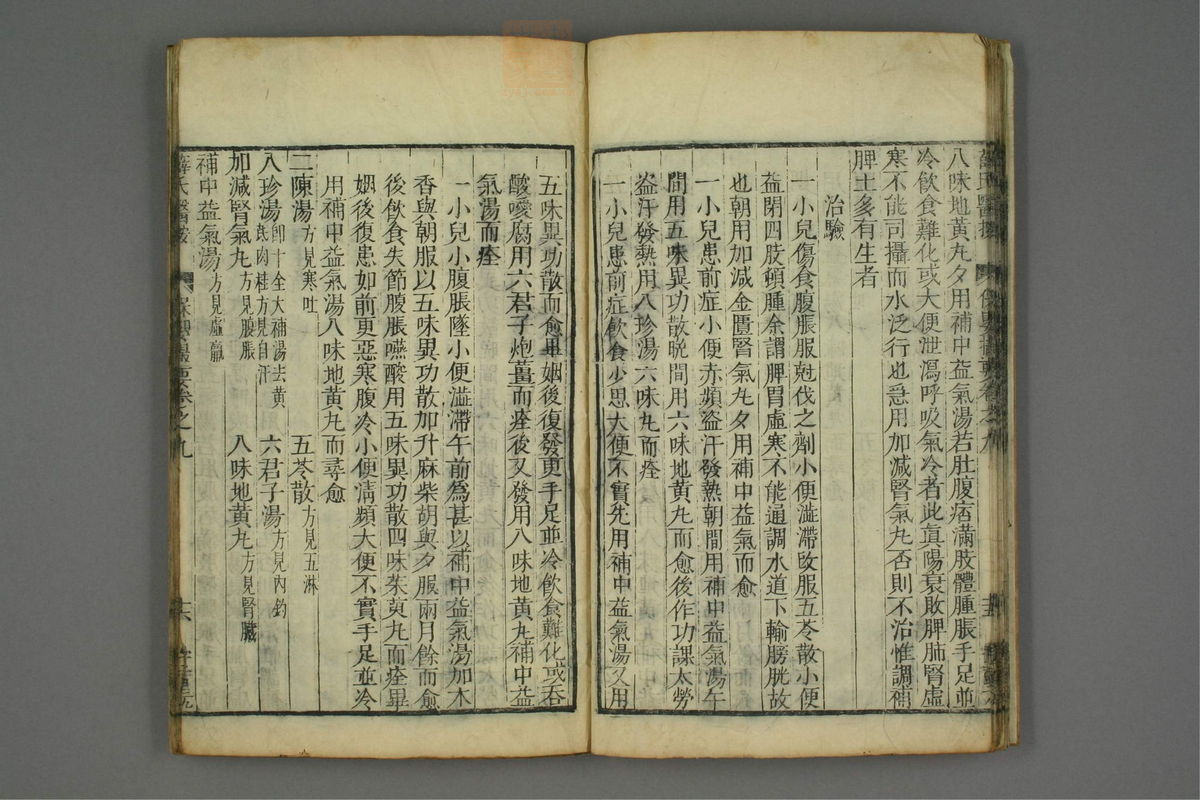 八味地黃丸夕用補中益氣湯若肚腹痞滿肢體腫脹手足並
冷飲食難化或大便泄瀉呼吸氣冷者此眞陽衰敗脾肺腎虛
寒不能司攝而水泛行也急用加減腎氣丸否則不治惟調補
脾土多有生者
治驗
一小兒傷食腹脹服尅伐之劑小便澁滯改服五苓散小便
益閉四肢頓腫余謂脾胃虛寒不能通調水道下輸膀胱故
也朝用加減金匱腎氣丸夕用補中益氣而愈
一小兒患前症小便赤頻盗汗發熱朝間用補中益氣湯午
間用五味異功散晩間用六味地黃丸而愈後作功課太勞
盗汗發熱用八珍湯六味丸而痊
一小兒患前症飲食少思大便不實先用補中益氣湯又用
五味異功散而愈畢姻後復發更手足並冷飲食難化或吞
酸噯腐用六君子炮薑而痊後又發用八味地黃丸補中益
氣湯而痊
一小兒小腹脹墜小便澁滯午前爲甚以補中益氣湯加木
香與朝服以五味異功散加升麻柴胡與夕服兩月餘而愈
後飲食失節腹脹嚥酸用五味異功散四味茱萸丸而痊畢
姻後復患如前更惡寒腹冷小便淸頻大便不實手足並冷
用補中益氣湯八味地黃丸而尋愈
二陳湯方見寒吐 五苓散方見五淋
八珍湯卽十全大補湯去黃芪肉桂方見自汗 六君子湯方見內釣
加減腎氣丸方見腹脹 八味地黃丸方見腎臟
補中益氣湯方見虛羸
薛氏醫案 保嬰撮要卷之九 十六